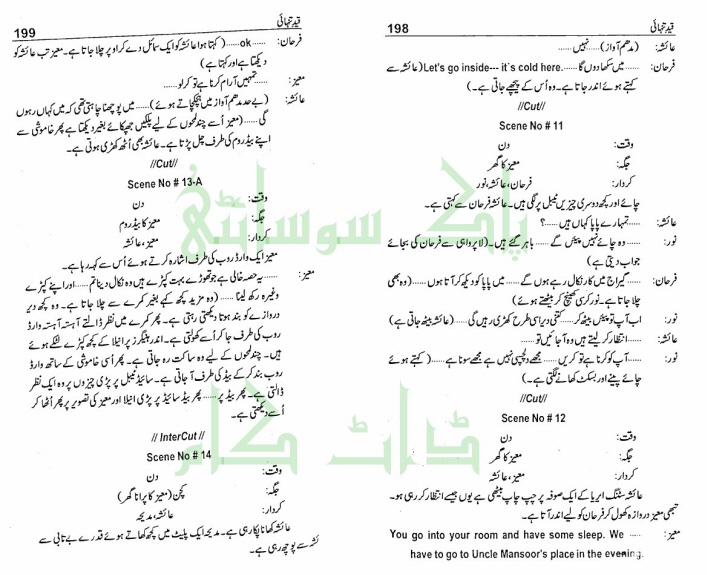 198 قید تنہائی
عائشہ: (مدھم آواز) ...... نہیں ......
فرحان: ...... میں سکھا دوں گا ...... Let's go inside--- it`s cold here. (عائشہ سے
کہتے ہوئے اندر جاتا ہے۔ وہ اُس کے پیچھے جاتی ہے۔)
//Cut//
Scene No # 11
وقت: دن
جگہ: معیز کا گھر
کردار: فرحان، عائشہ، نور
چائے اور کچھ دوسری چیزیں ٹیبل پر لگی ہیں۔ عائشہ فرحان سے کہتی ہے۔
عائشہ: ...... تمہارے پاپا کہاں ہیں ......؟
نور: ...... وہ چائے نہیں پیش گے ...... باہر گئے ہیں۔ (لا پرواہی سے فرحان کی بجائے
جواب دیتی ہے)
فرحان: ...... گیراج میں کار نکال رہے ہوں گے ...... میں پاپا کو دیکھ کر آتا ہوں ...... (وہ بھی
چلا جاتا ہے۔ نور کرسی کھینچ کر بیٹھتے ہوئے)
نور: اب آپ تو پیش بیٹھ کر ...... کتنی دیر اسی طرح کھڑی رہیں گی ...... (عائشہ بیٹھ جاتی ہے)
عائشہ: ...... انتظار کر لیتے ہیں وہ آ جائیں تو ......
نور: ...... آپ کو کرنا ہے تو کریں ...... مجھے دلچسپی نہیں ہے مجھے سونا ہے ...... (کہتے ہوئے
چائے پینے اور بسکٹ کھانے لگتی ہے۔)
//Cut//
Scene No # 12
وقت: دن
جگہ: معیز کا گھر
کردار: معیز، عائشہ
عائشہ سٹنگ ایریا کے ایک صوفہ پر چپ چاپ بیٹھی ہے یوں جیسے انتظار کر رہی ہو۔
تبھی معیز دروازہ کھول کر فرحان کو لیے اندر آتا ہے۔
معیز: ...... You go into your room and have some sleep. We
have to go to Uncle Mansoor's place in the evening.
199 قید تنہائی
فرحان: ok...... ...... (کہتا ہوا عائشہ کو ایک سمائل دے کر اوپر چلا جاتا ہے۔ معیز تب عائشہ کو
دیکھتا ہے اور کہتا ہے)
معیز: ...... تمہیں آرام کرنا ہے تو کر لو ......
عائشہ: (بے حد مدھم آواز میں ہچکچاتے ہوئے) ...... میں پوچھنا چاہتی تھی کہ میں کہاں رہوں
گی ...... (معیز اُسے چند لمحوں کے لیے پلکیں جھپکائے بغیر دیکھتا ہے پھر خاموشی سے
اپنے بیڈ روم کی طرف چل پڑتا ہے۔ عائشہ بھی اُٹھ کھڑی ہوتی ہے۔
//Cut//
Scene No # 13-A
وقت: دن
جگہ: معیز کا بیڈ روم
کردار: معیز، عائشہ
معیز ایک وارڈ روب کی طرف اشارہ کرتے ہوئے اُس سے کہہ رہا ہے۔
معیز: ...... یہ حصہ خالی ہے جو تھوڑے بہت کپڑے ہیں وہ نکال دینا تم ...... اور اپنے کپڑے
وغیرہ رکھ لینا ...... (وہ مزید کچھ کہے بغیر کمرے سے چلا جاتا ہے۔ وہ کچھ دیر
دروازے کو بند ہوتا دیکھتی رہتی ہے۔ پھر کمرے میں نظر ڈالتے آہستہ آہستہ وارڈ
روب کی طرف جا کر اُسے کھولتی ہے۔ اندر ہینگرز پر انیلا کے کچھ کپڑے لٹکے ہوئے
ہیں۔ چند لمحوں کے لیے وہ ساکت رہ جاتی ہے۔ پھر اسی خاموشی کے ساتھ وارڈ
روب بند کر کے بیڈ کی طرف آ جاتی ہے۔ سائیڈ ٹیبل پر پڑی چیزوں پر وہ ایک نظر
ڈالتی ہے۔ پھر بیڈ پر ...... پھر بیڈ سائیڈ پر پڑی انیلا اور معیز کی تصویر پر پھر اُٹھا کر
اُسے دیکھتی ہے۔
// InterCut //
Scene No # 14
وقت: دن
جگہ: کچن (معیز کا پرانا گھر)
کردار: عائشہ، مدیحہ
عائشہ کھانا پکا رہی ہے۔ مدیحہ ایک پلیٹ میں کچھ کھاتے ہوئے قدرے بے تابی سے
عائشہ سے پوچھ رہی ہے۔
پاک سوسائٹی
ڈاٹ کام